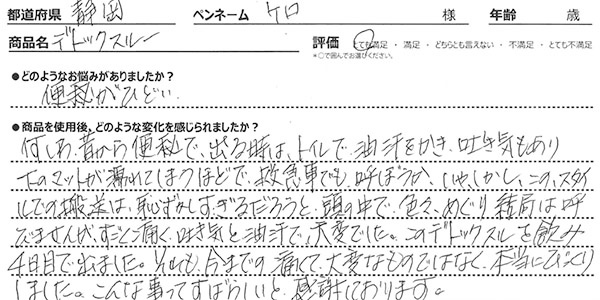 都道府県 静岡 ペンネーム ケロ 様 年齢 歳
商品名 デトックスルー 評価 とても満足 ・ 満足 ・ どちらとも言えない ・ 不満足 ・ とても不満足
*○で囲んでお選びください。
●どのようなお悩みがありましたか？
便秘がひどい
●商品を使用後、どのような変化を感じられましたか？
何しろ、昔から便秘で、出る時は、トイレで、油汗をかき、吐き気もあり
下のマットが濡れてしまうほどで、救急車でも、呼ぼうか、いや、しかし、この、スタイ
ルでの搬送は、恥ずかしすぎるだろうと、頭の中で、色々、めぐり結局は呼
びませんが、すごく痛く、吐き気と油汗で、大変でした。このデトックスルーを飲み
4日目で出ました。それも、今までの痛くて、大変なものではなく、本当にびっくり
しました。こんな事ってすばらしいと、感謝しております。